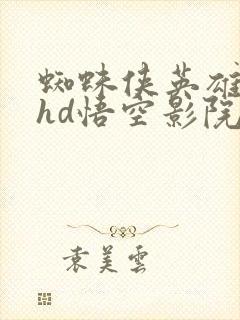 蜘蛛侠英雄
hd悟空影院
袁美雲